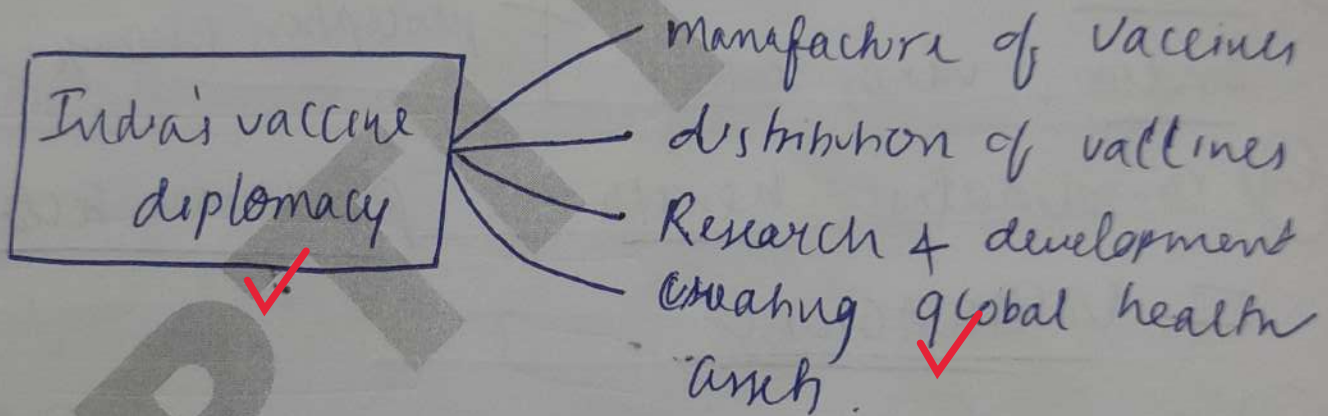 India's vaccine
diplomacy
manafacture of vacceines
distribution of vattines
Research & development
creating global health
assets.